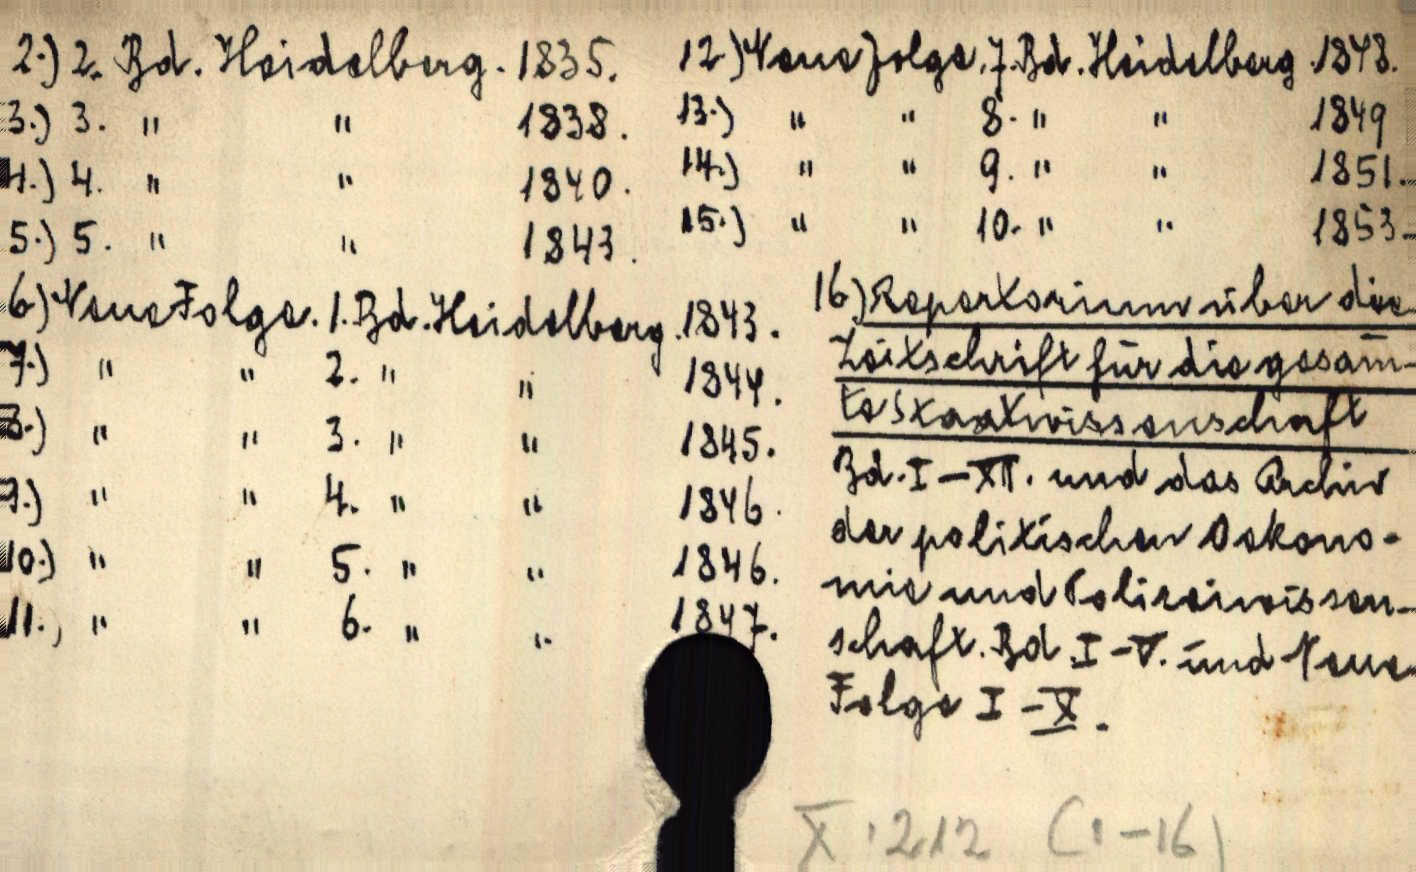 2.) 2. Bd. Heidelberg. 1835.
3.) 3. " " 1838.
4.) 4. " " 1840.
5.) 5. " " 1843.
6.) Neue Folge. 1. Bd. Heidelberg. 1843.
7.) " " 2. " " 1844.
8.) " " 3. " " 1845.
9.) " " 4. " " 1846.
10.) " " 5. " " 1846.
11.) " " 6. " " 1847.
12.) Neue Folge. 7. Bd. Heidelberg. 1848.
13.) " " 8. " " 1849
14.) " " 9. " " 1851.
15.) " " 10. " " 1853.
16.) Repertorium über die
Zeitschrift für die gesam̄-
te Staatwissenschaft
Bd. I-XII. und das Archiv
der politischen Oekono-
mie und Polizeiwissen-
schaft. Bd. I-V. und Neue
Folge I-X.
X. 212 (1-16)